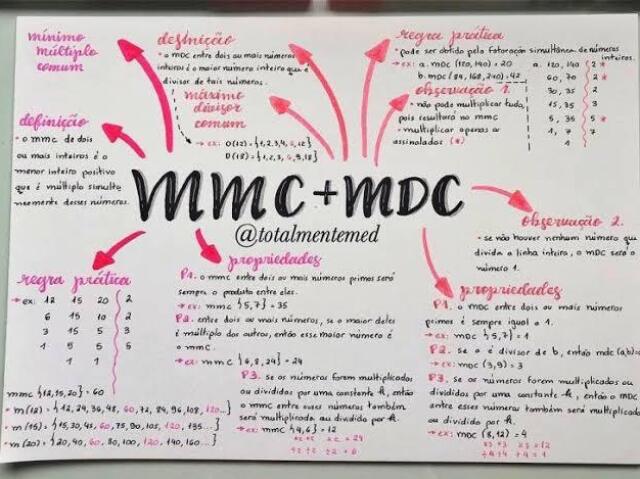 mínimo
múltiplo
comum
definição
• o mmc de dois
ou mais inteiros é o
menor inteiro positivo
que é múltiplo simulta
neamente desses números.
definição
• o mdc entre dois ou mais números
inteiros é o maior número inteiro que é
divisor de tais números.
máximo
divisor
comum
→ ex: D(12) = {1,2,3,4,6,12}
D(18) = {1,2,3,6,9,18}
regra prática
• pode ser obtido pela fatoração simultânea de números
inteiros.
→ ex: a. mdc (120, 140) = 20
b. mdc (84, 168, 210) = 42
a. 120, 140 | 2 *
60, 70 | 2 *
30, 35 | 2
15, 35 | 3
5, 35 | 5 *
1, 7 | 7
1
observação 1.
• não pode multiplicar tudo,
pois resultará no mmc
• multiplicar apenas os
assinalados (*)
MMC + MDC
@totalmentemed
observação 2.
• se não houver nenhum número que
divida a linha inteira, o mdc será o
número 1.
regra prática
→ ex: 12 15 20 | 2
6 15 10 | 2
3 15 5 | 3
1 5 5 | 5
1 1
mmc {12,15,20} = 60
• m(12) = {12,24,36,48,60,72,84,96,108,120...}
• m(15) = {15,30,45,60,75,90,105,120,135...}
• m(20) = {20,40,60,80,100,120,140,160...}
propriedades
P1. o mmc entre dois ou mais números primos será
sempre o produto entre eles.
→ ex: mmc {5,7} = 35
P2. entre dois ou mais números, se o maior deles
é múltiplo dos outros, então esse maior número é
o mmc.
→ ex: mmc {6,8,24} = 24
P3. se os números forem multiplicados
ou divididos por uma constante k, então
o mmc entre esses números também
será multiplicado ou dividido por k.
→ ex: mmc {4,6} = 12
x2 x2 x2 = 24
÷2 ÷2 ÷2 = 6
propriedades
P1. o mdc entre dois ou mais números
primos é sempre igual a 1.
→ ex: mdc (5,7) = 1
P2. se a é divisor de b, então mdc (a,b)=
→ ex: mdc (3,9) = 3
P3. se os números forem multiplicados
ou divididos por uma constante k, então o mdc
entre esses números também será multiplicado
ou dividido por k.
→ ex: mdc (8,12) = 4
x3 x3 x3 = 12
÷4 ÷4 ÷4 = 1